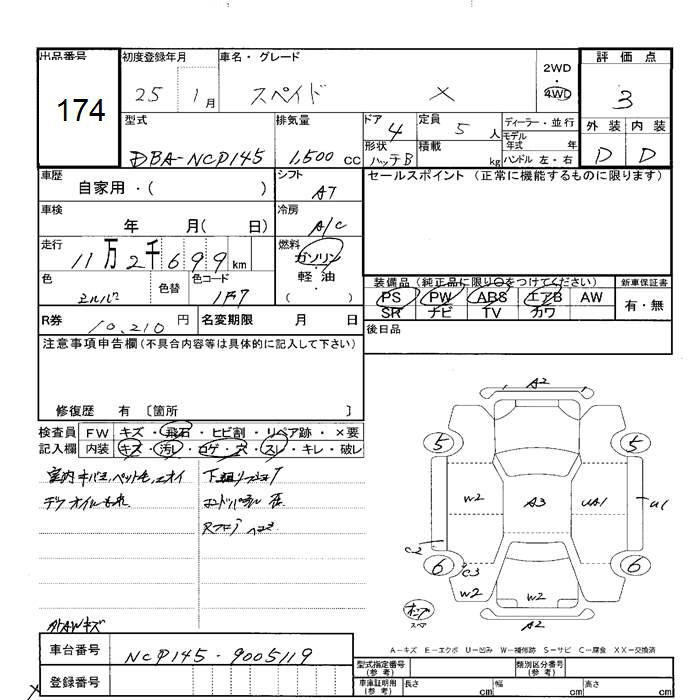 出品番号 初度登録年月 車名・グレード 2WD 評価点
174 25 1月 スペイド X 4WD 3
型式 排気量 ドア 4 定員 5人 ディーラー・並行 外装 内装
DBA-NCP145 1,500cc 形状 ハッチB 積載 kg モデル年式 年 ハンドル 左・右 D D
車歴 自家用・( ) シフト AT セールスポイント (正常に機能するものに限ります)
車検 年 月( 日) 冷房 A/C
走行 11万2千699km 燃料 ガソリン・軽油・( )
色 シルバー 色替 色コード 1F7
装備品(純正品に限り○をつけてください) 新車保証書
PS PW ABS エアB AW 有・無
SR ナビ TV カワ
R券 10,210円 名変期限 月 日 後日品
注意事項申告欄(不具合内容等は具体的に記入して下さい)
修復歴 有 〔箇所 〕
検査員 FW キズ・飛石・ヒビ割・リペア跡・×要
記入欄 内装 キズ・汚レ・コゲ・穴・スレ・キレ・破レ
室内キバミ,ペット毛,ニオイ
デフオイルもれ
外AWキズ
A2
5 5
W2 A3 UA1 U1
C2
6 C3 6
W2 W2
A2
スペア
A-キズ E-エクボ U-凹み W-補修跡 S-サビ C-腐食 XX-交換済
車台番号 NCP145-9005119
登録番号
型式指定番号(参考) 類別区分番号(参考)
車庫証明用(参考) 長さ cm 幅 cm 高さ cm